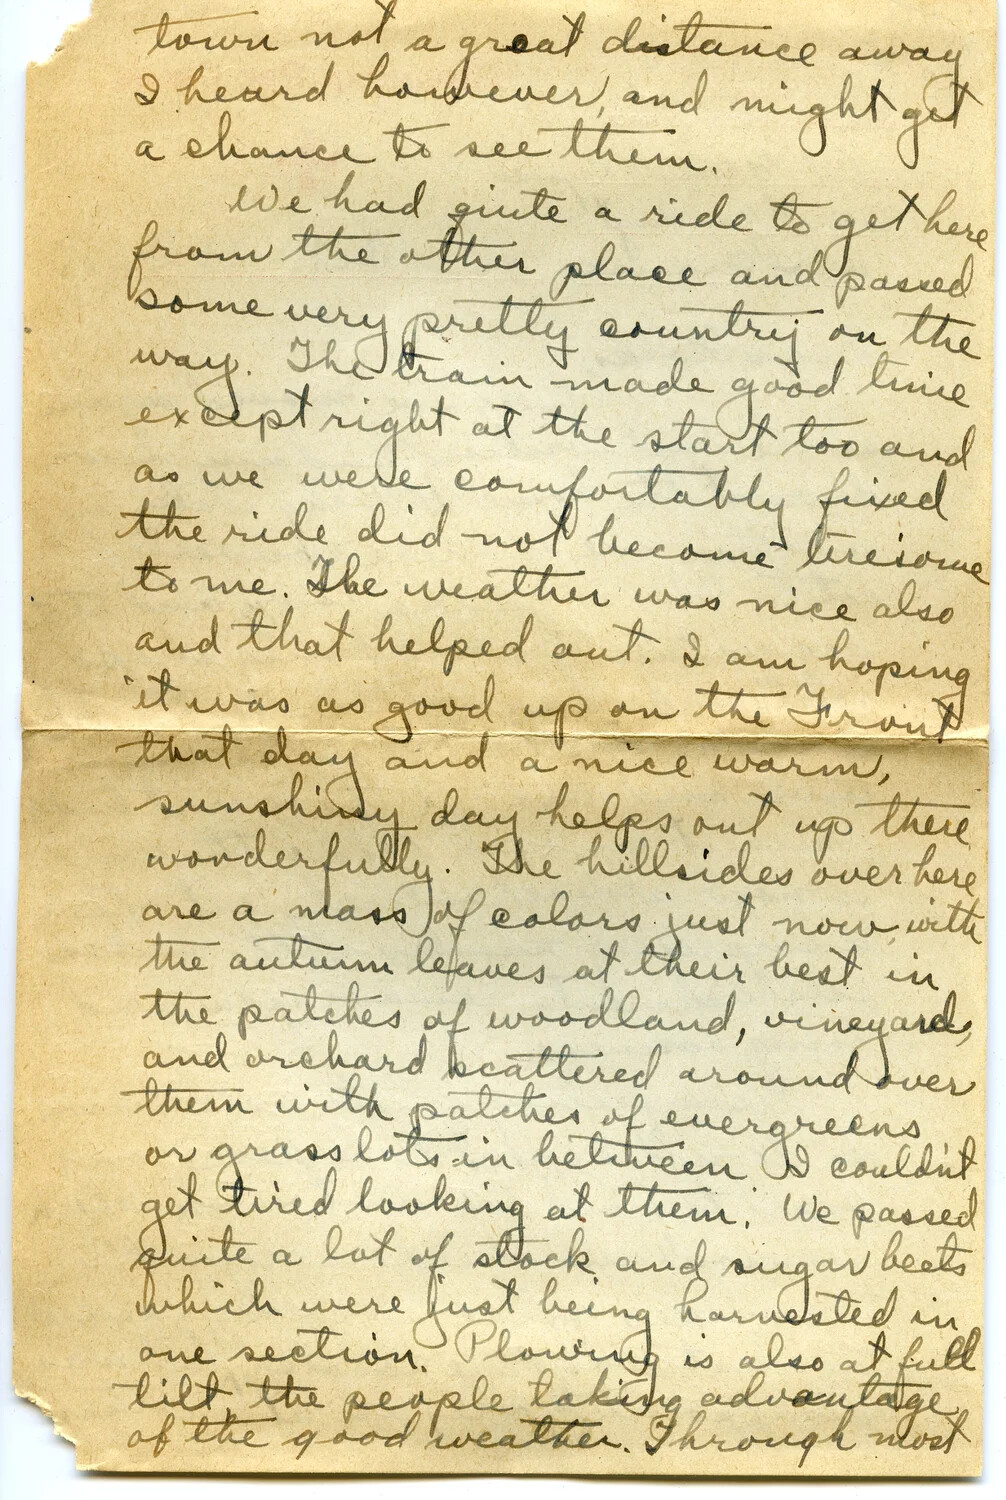 town not a great distance away
I heard however, and might get
a chance to see them.
We had quite a ride to get here
from the other place and passed
some very pretty country on the
way. The train made good time
except right at the start too and
as we were comfortably fixed
the ride did not become tiresome
to me. The weather was nice also
and that helped out. I am hoping
it was as good up on the Front
that day and a nice warm,
sunshiny day helps out up there
wonderfully. The hillsides over here
are a mass of colors just now, with
the autumn leaves at their best in
the patches of woodland, vineyard,
and orchard scattered around over
them with patches of evergreens
or grass lots in between I couldn't
get tired looking at them. We passed
quite a lot of stock and sugar beets
which were just being harvested in
one section. Plowing is also at full
tilt, the people taking advantage
of the good weather. Through most